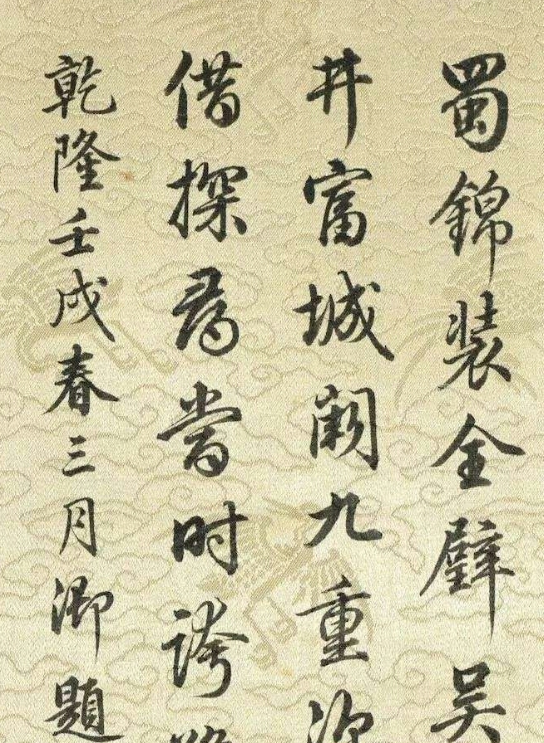 蜀錦装全璧吴
井富城闕九重
借探尋當时誇
乾隆壬戌春三月御題